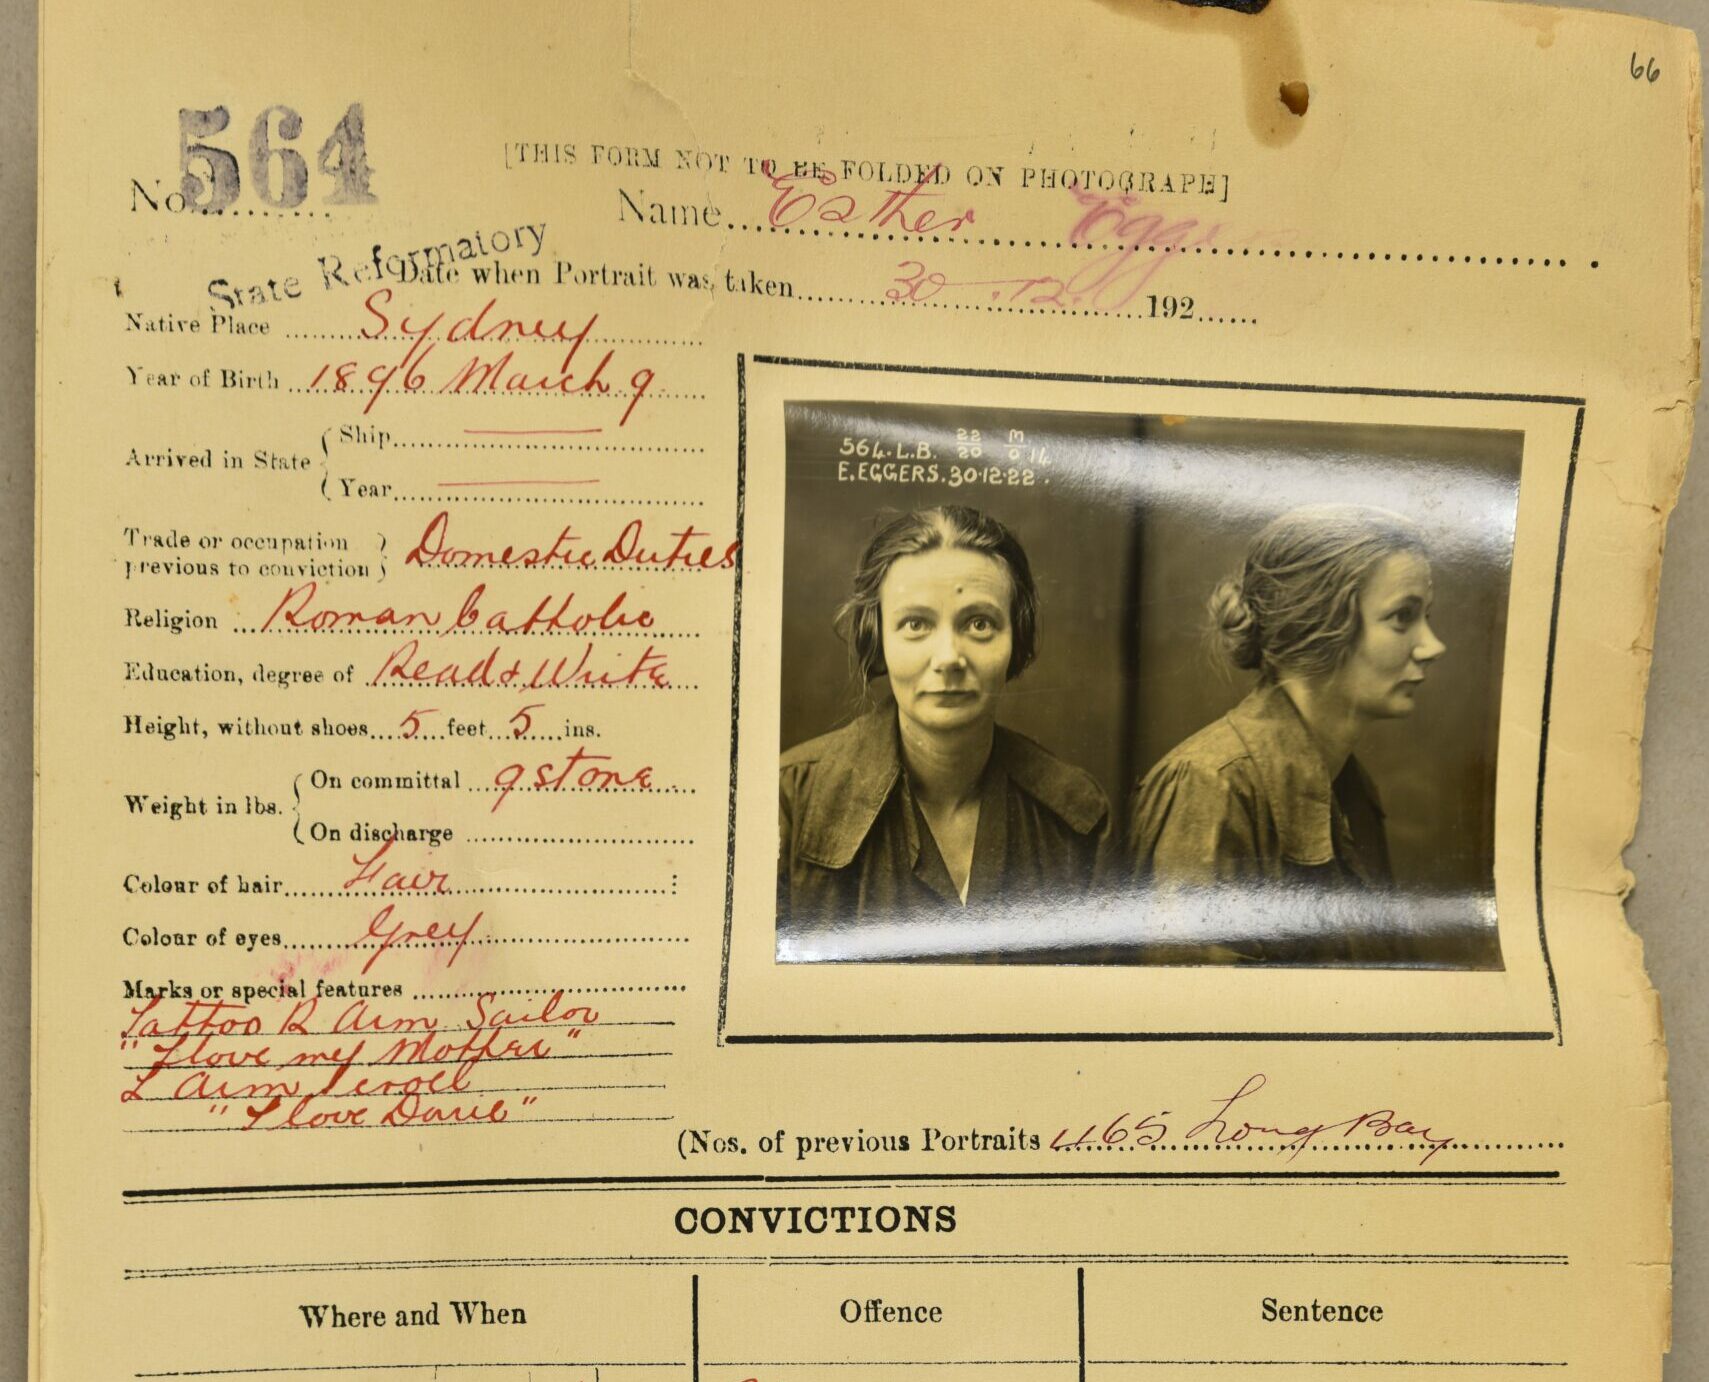 66
564
[THIS FORM NOT TO BE FOLDED ON PHOTOGRAPH]
No.
Name Esther Eggers
State Reformatory
Date when Portrait was taken 30.12. 192
Native Place Sydney
Year of Birth 1896 March 9
Arrived in State
Ship
Year
564.L.B. 22 M
20 0 14
E.EGGERS.30.12.22.
Trade or occupation
previous to conviction Domestic Duties
Religion Roman Catholic
Education, degree of Read & Write
Height, without shoes 5 feet 5 ins.
Weight in lbs.
On committal 9 stone
On discharge
Colour of hair Fair
Colour of eyes Grey
Marks or special features
Tattoo R Arm Sailor
"I love my Mother"
L Arm
"I love Davie"
(Nos. of previous Portraits 465 Long Bay
CONVICTIONS
Where and When Offence Sentence